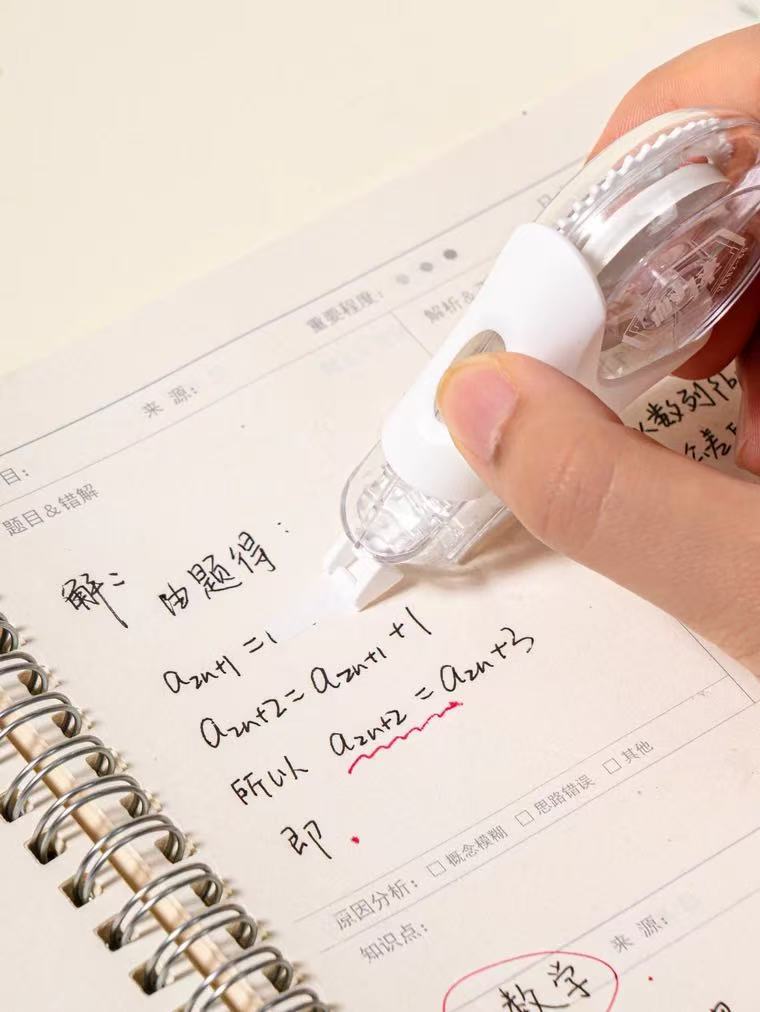 重要程度：
解析&
来 源：
目：
题目&错解
数列
解： 由题得：
a2n+1 =
a2n+2 = a2n+1 + 1
所以 a2n+2 = a2n + 3
即
原因分析： □ 概念模糊 □ 思路错误 □ 其他
知识点：
来 源：
数学